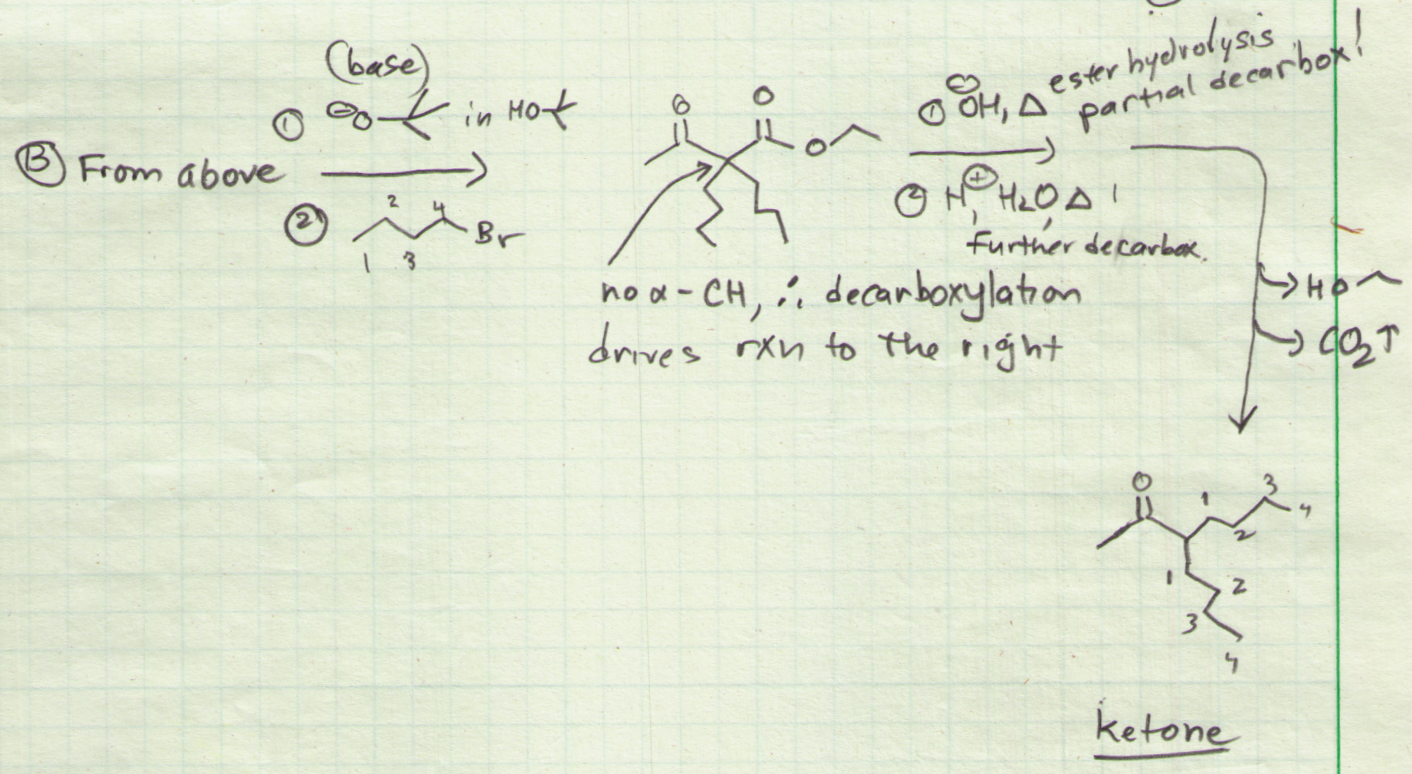 (base)
① ⊖O in HO
Ⓑ From above
② Br
1 2 3 4
O O
O
① ⊖OH, Δ ester hydrolysis
partial decarbox!
② H⊕, H₂O, Δ
further decarbox.
no α-CH, ∴ decarboxylation
drives rxn to the right
HO
CO₂↑
O
1 2 3 4
1 2 3 4
ketone